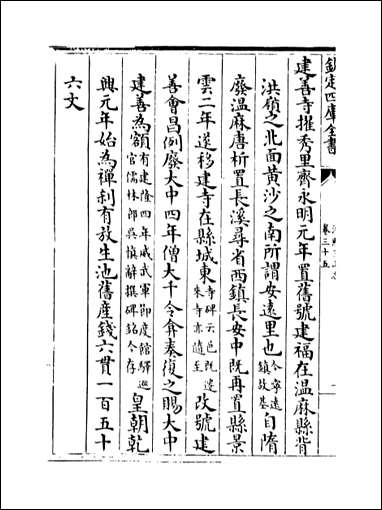 欽定四庫全書
卷三十五
建善寺擢秀里齊永明元年置舊號建福在溫麻縣背
洪嶺之北面黃沙之南所謂安遠里也今寧遠鎮故基自隋
廢溫麻唐析置長溪尋省西鎮長安中既再置縣景
雲二年遂移建寺在縣城東寺碑云邑既遷朱寺亦隨至改號建
善會昌例廢大中四年僧大千令弇奏復之賜大中
建善為額有建隆四年威武軍節度館驛巡官儒林郎吳慎辭撰碑銘今存皇朝乾
興元年始為禪刹有放生池舊產錢六貫一百五十
六文